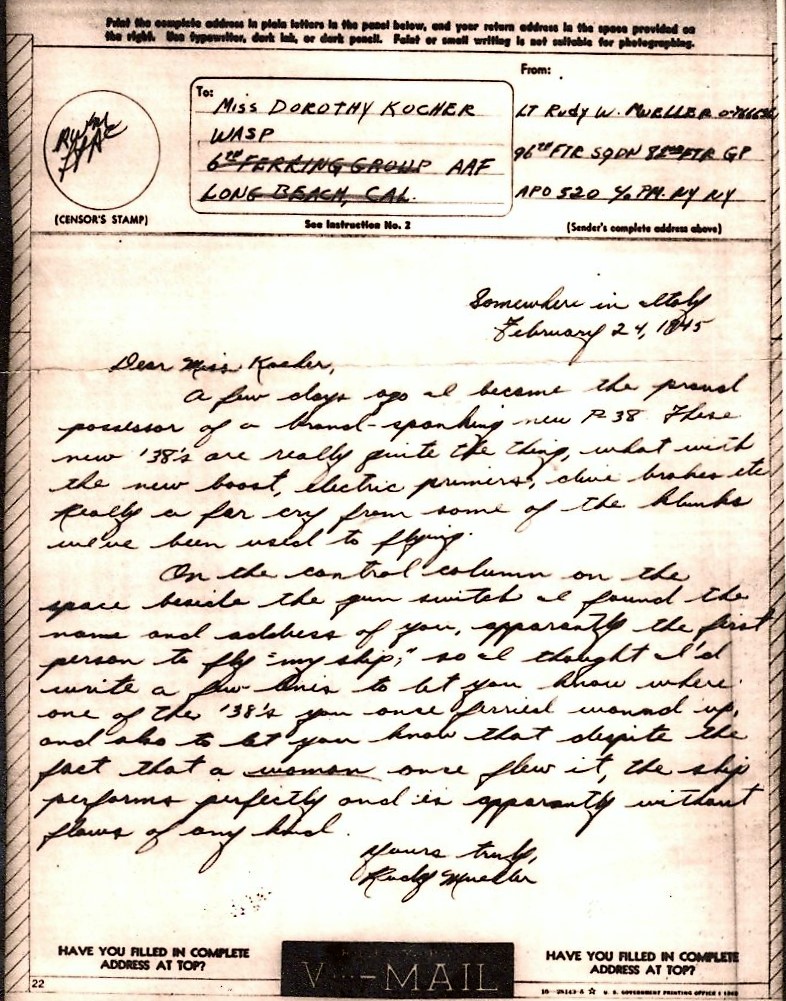 Print the complete address in plain letters in the panel below, and your return address in the space provided on
the right. Use typewriter, dark ink, or dark pencil. Faint or small writing is not suitable for photographing.
From:
To:
Miss DOROTHY KOCHER
LT Rudy W. MUELLER
WASP
RWM
6TH FERRING GROUP AAF
96TH FTR SQDN 82ND FTR GP
LONG BEACH, CAL.
APO 520 % PM. NY NY
(CENSOR'S STAMP)
See Instruction No. 2
(Sender's complete address above)
Somewhere in Italy
February 24, 1945
Dear Miss Kocher,
A few days ago I became the proud
possessor of a brand-spanking new P-38. These
new '38's are really quite the thing, what with
the new boost, electric primers, dive brakes etc
Really a far cry from some of the klunks
we've been used to flying.
On the control column on the
space beside the gun switch I found the
name and address of you, apparantly the first
person to fly "my ship," so I thought I'd
write a few lines to let you know where
one of the '38's you once ferried wound up,
and also to let you know that despite the
fact that a woman once flew it, the ship
performs perfectly and is apparantly without
flaws of any kind.
Yours truly,
Rudy Mueller
HAVE YOU FILLED IN COMPLETE
ADDRESS AT TOP?
V···—MAIL
HAVE YOU FILLED IN COMPLETE
ADDRESS AT TOP?
22
U. S. GOVERNMENT PRINTING OFFICE